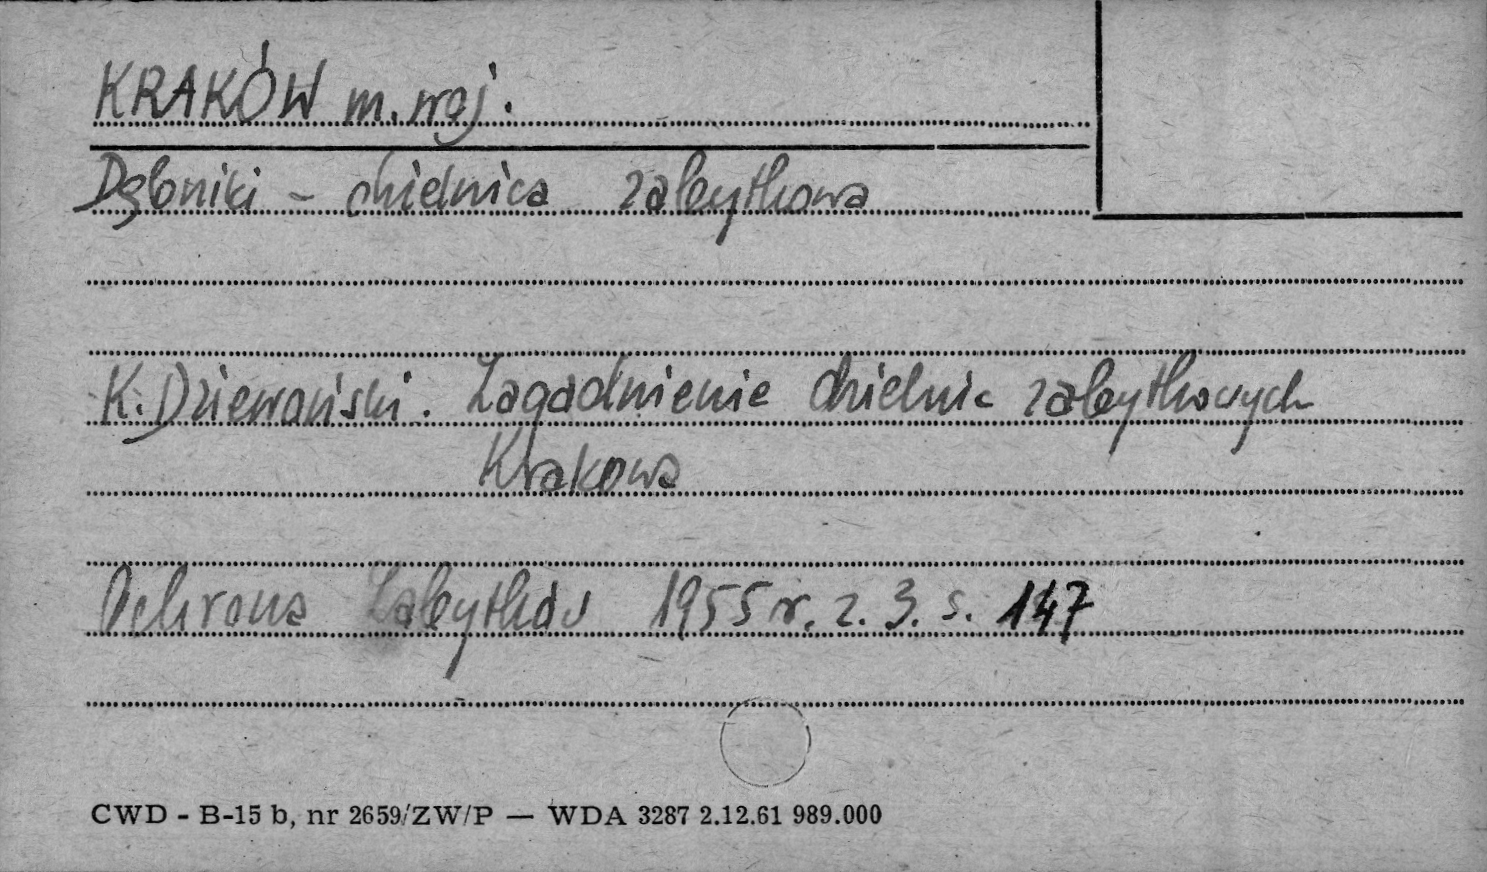 KRAKÓW m. woj.
Dębniki - dzielnica zabytkowa
K. Dziewoński. Zagadnienie dzielnic zabytkowych
Krakowa
Ochrona Zabytków 1955 r. z. 3. s. 147
CWD - B-15 b, nr 2659/ZW/P — WDA 3287 2.12.61 989.000